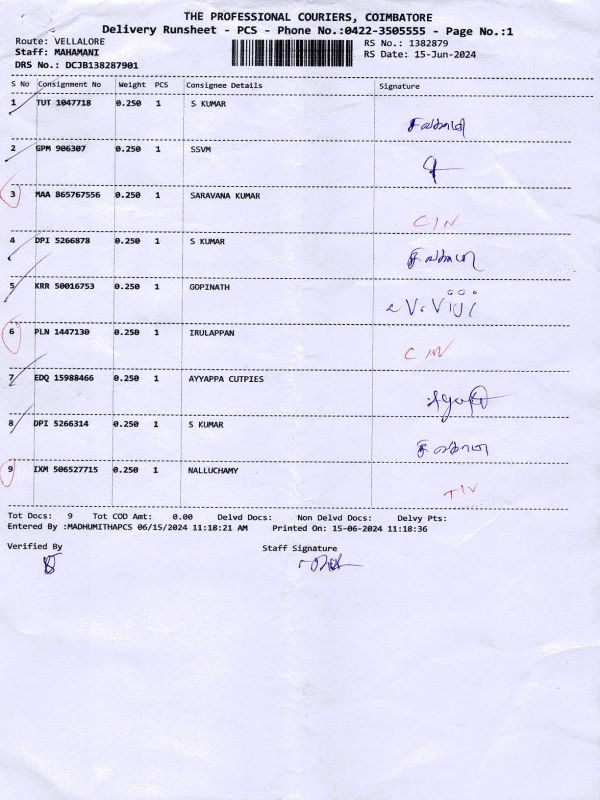 THE PROFESSIONAL COURIERS, COIMBATORE
Delivery Runsheet - PCS - Phone No.:0422-3505555 - Page No.:1
Route: VELLALORE
Staff: MAHAMANI
DRS No.: DCJB138287901
RS No.: 1382879
RS Date: 15-Jun-2024
S No Consignment No Weight PCS Consignee Details Signature
1 TUT 1047718 0.250 1 S KUMAR
2 GPM 906307 0.250 1 SSVM
3 MAA 865767556 0.250 1 SARAVANA KUMAR
C/N
4 DPI 5266878 0.250 1 S KUMAR
5 KRR 50016753 0.250 1 GOPINATH
6 PLN 1447130 0.250 1 IRULAPPAN
C/N
7 EDQ 15988466 0.250 1 AYYAPPA CUTPIES
8 DPI 5266314 0.250 1 S KUMAR
9 IXM 506527715 0.250 1 NALLUCHAMY
Tot Docs: 9 Tot COD Amt: 0.00 Delvd Docs: Non Delvd Docs: Delvy Pts:
Entered By :MADHUMITHAPCS 06/15/2024 11:18:21 AM Printed On: 15-06-2024 11:18:36
Verified By Staff Signature